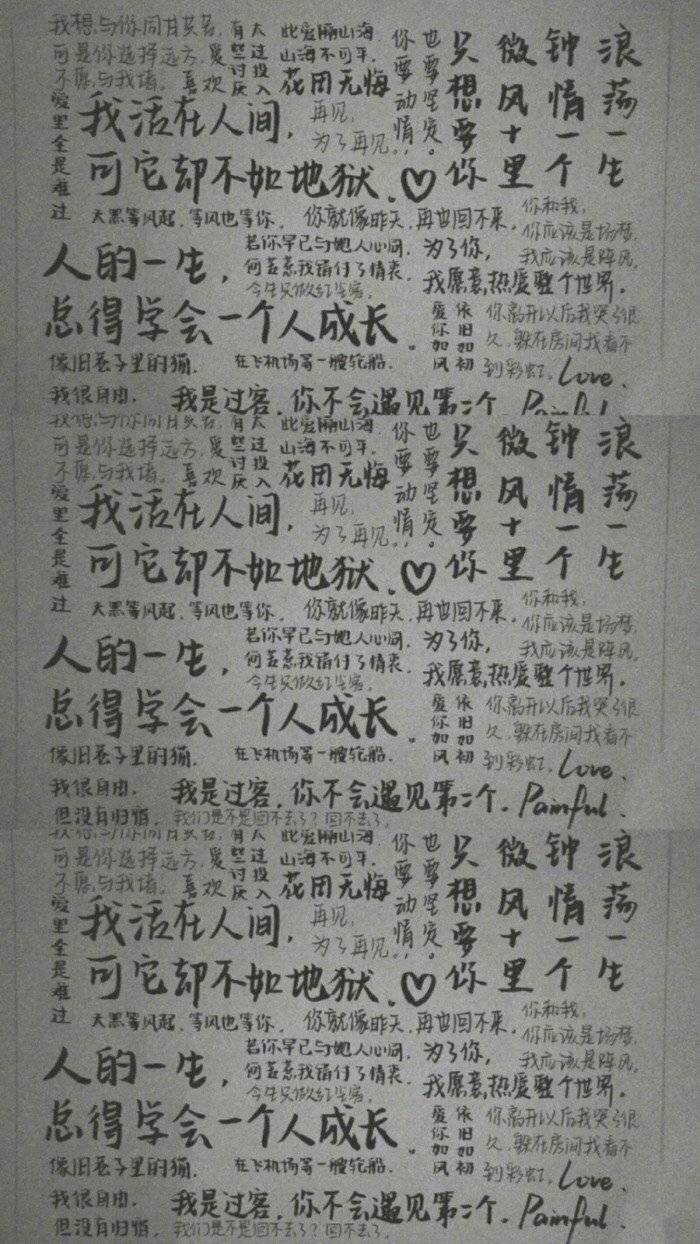 我想与你同甘共苦,
可是你选择远方,
不愿与我堵。
有些讨厌
太过投入
喜欢
此爱隔山海
山海不可平。
花用无悔
你要动情
也要坚定。
只想要你
微风十里
钟情一个
浪荡一生
爱里全是难过
我活在人间,
再见,
为了再见..
可它却不如地狱.♡
天黑等风起,等风也等你。
你就像昨天,再也回不来。
你和我,
你应该是场梦,
我应该是阵风。
人的一生,
若你早已与她人心同,
何苦惹我错付了情衷。
今生只做红尘客。
为了你,
我愿意热爱整个世界。
总得学会一个人成长。
爱你如风
依旧如初
你离开以后我哭了很
久,躲在房间找看不
到彩虹。
Love.
像旧巷子里的猫.
在飞机场等一艘轮船.
我很自由.
我是过客.你不会遇见第二个.Painful
我想与你同甘共苦,
可是你选择远方,
不愿与我堵。
有些讨厌
太过投入
喜欢
此爱隔山海
山海不可平。
花用无悔
你要动情
也要坚定。
只想要你
微风十里
钟情一个
浪荡一生
爱里全是难过
我活在人间,
再见,
为了再见..
可它却不如地狱.♡
天黑等风起,等风也等你。
你就像昨天,再也回不来。
你和我,
你应该是场梦,
我应该是阵风。
人的一生,
若你早已与她人心同,
何苦惹我错付了情衷。
今生只做红尘客。
为了你,
我愿意热爱整个世界。
总得学会一个人成长。
爱你如风
依旧如初
你离开以后我哭了很
久,躲在房间找看不
到彩虹。
Love.
像旧巷子里的猫.
在飞机场等一艘轮船.
我很自由.
但没有归宿.
我是过客.你不会遇见第二个.Painful.
我们是不是回不去了?回不去了。
我想与你同甘共苦,
可是你选择远方,
不愿与我堵。
有些讨厌
太过投入
喜欢
此爱隔山海
山海不可平。
花用无悔
你要动情
也要坚定。
只想要你
微风十里
钟情一个
浪荡一生
爱里全是难过
我活在人间,
再见,
为了再见..
可它却不如地狱.♡
天黑等风起,等风也等你。
你就像昨天,再也回不来。
你和我,
你应该是场梦,
我应该是阵风。
人的一生,
若你早已与她人心同,
何苦惹我错付了情衷。
今生只做红尘客。
为了你,
我愿意热爱整个世界。
总得学会一个人成长。
爱你如风
依旧如初
你离开以后我哭了很
久,躲在房间找看不
到彩虹。
Love.
像旧巷子里的猫.
在飞机场等一艘轮船.
我很自由.
但没有归宿.
我是过客.你不会遇见第二个.Painful.
我们是不是回不去了?回不去了。